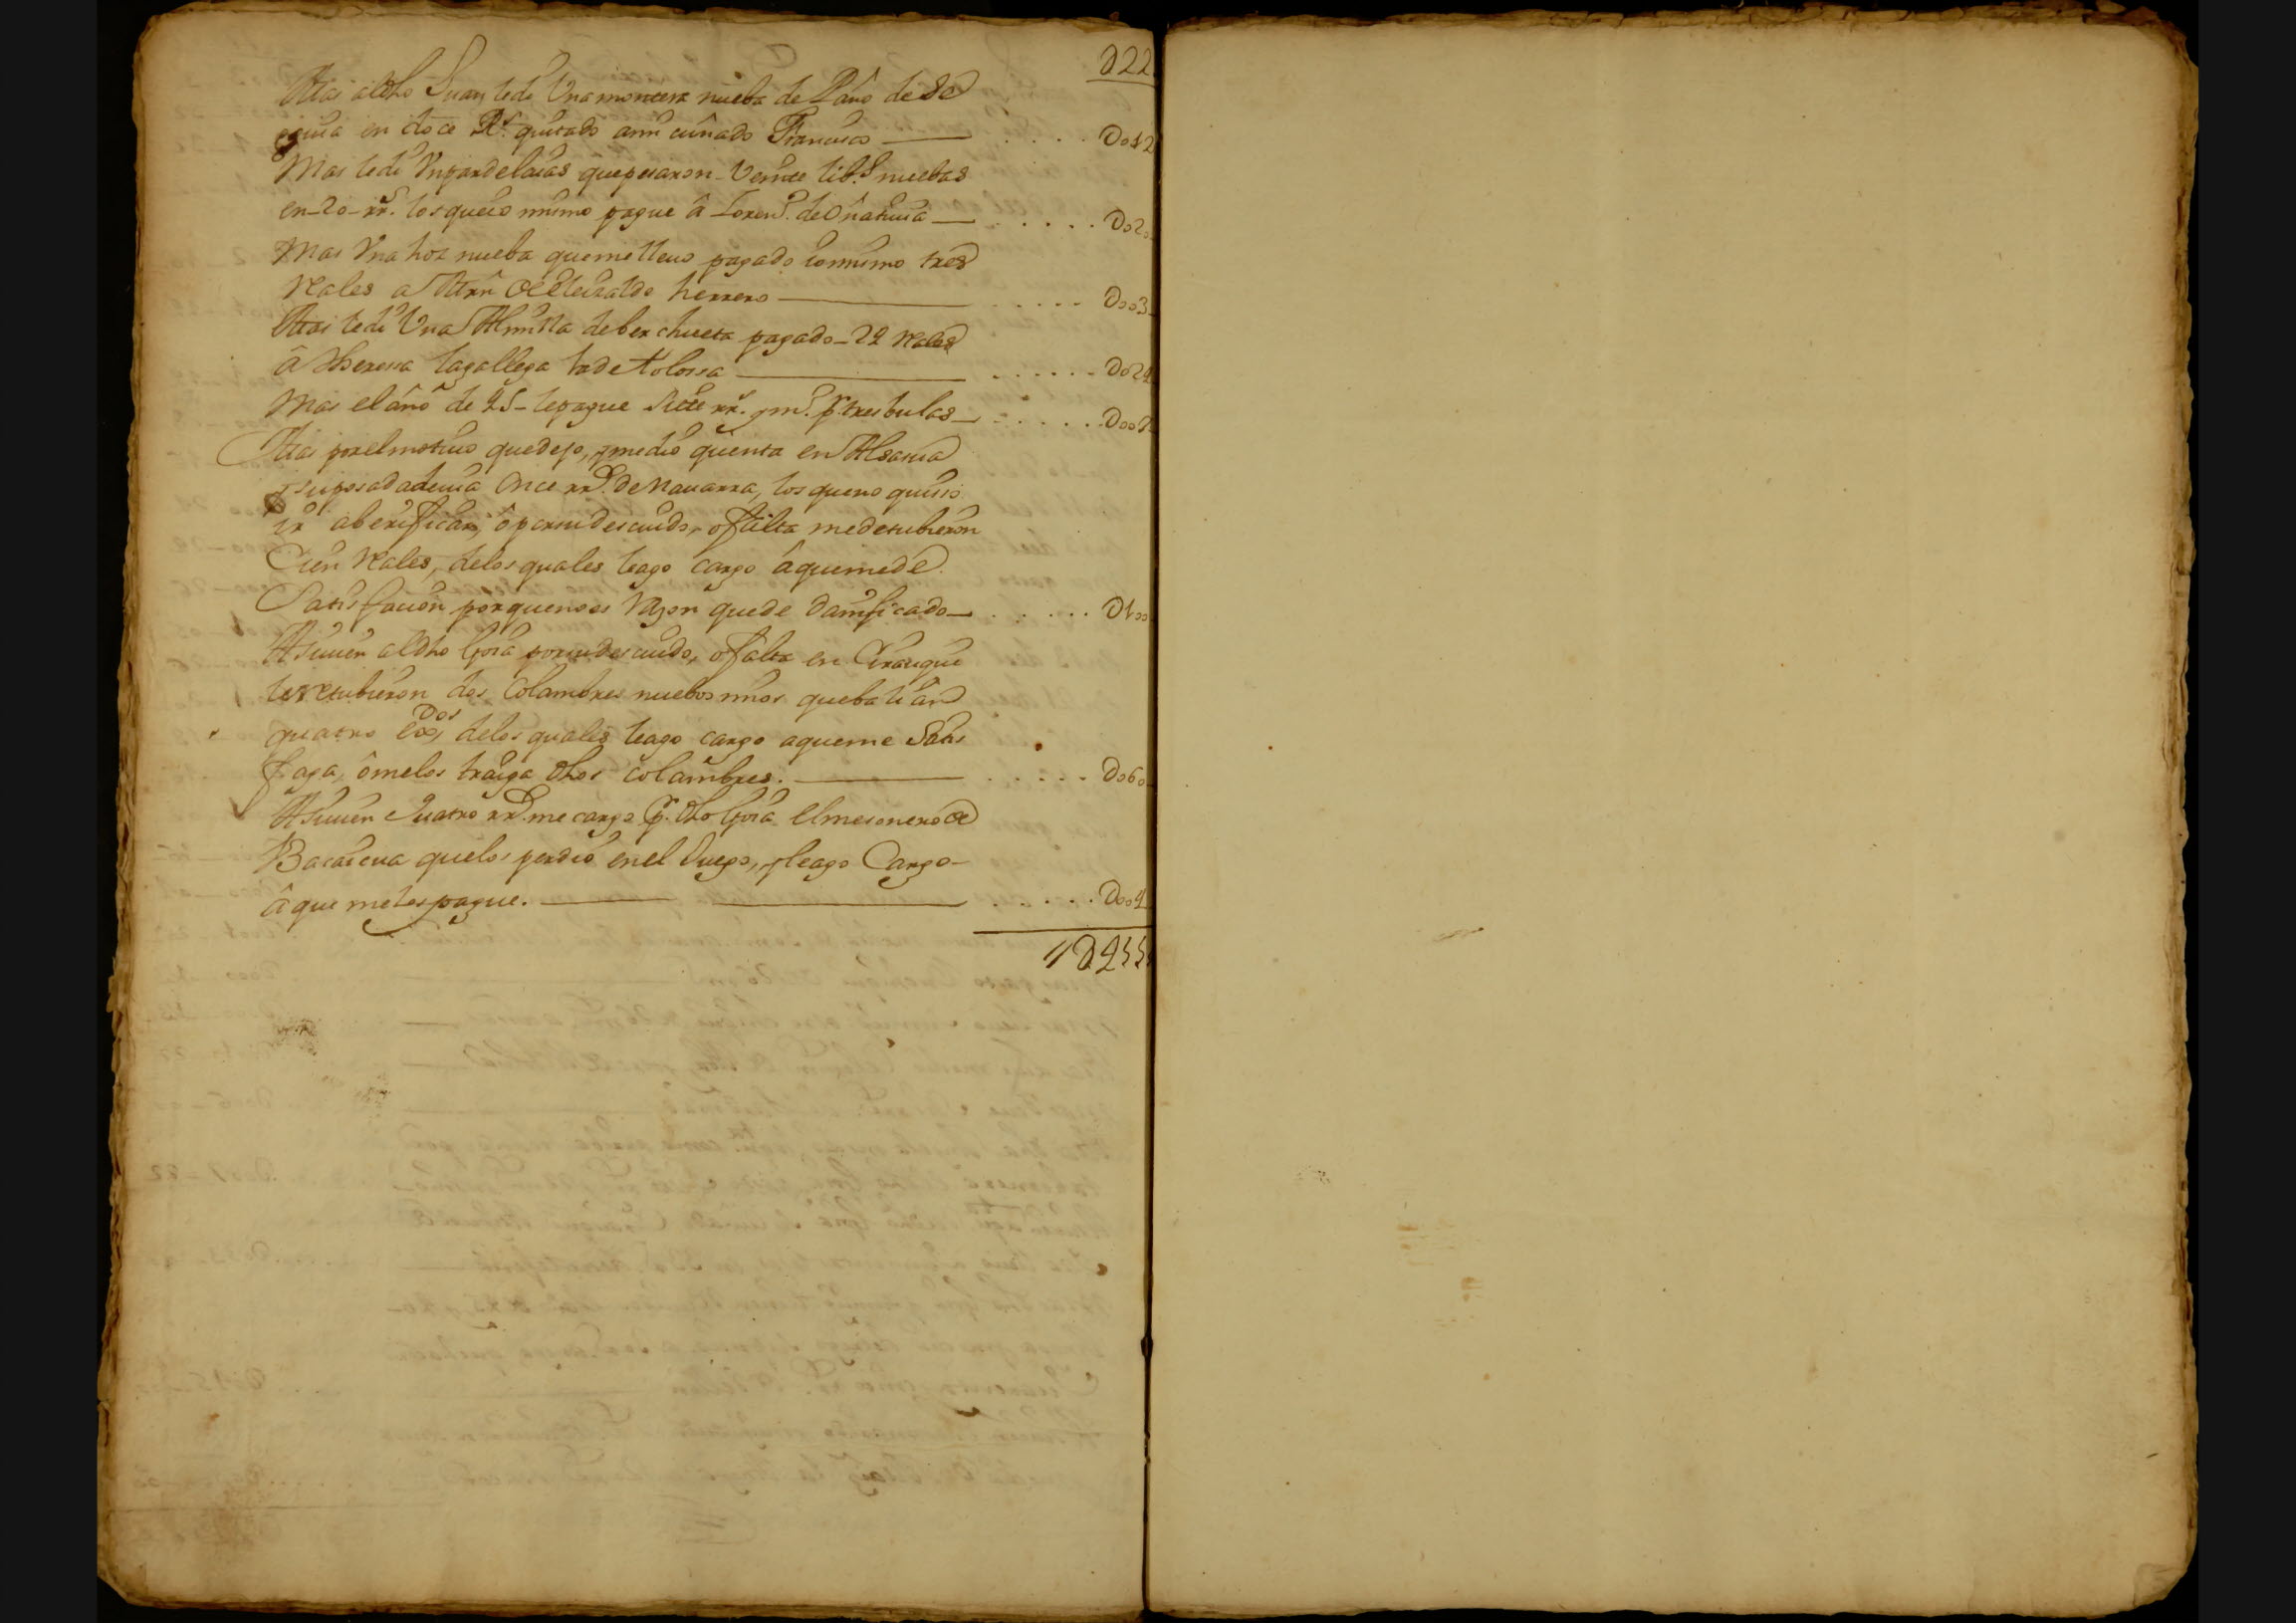 D22
Mas al dho Juan le di Vna montera nueba de Paño de Se
gouia en doce Rs. quitado a mi cuñado Francisco — .... Do12
Mas le di Vn par de laias que pesaron - Veinte lib.s nuebas
en - 20 - rrs. los que io mismo pague â Loren.o de Oñatiuia — ..... Do20
Mas Vna hoz nueba que me lleuo pagado io mismo tres
Reales a Mrn de herrero — ..... Doo3
Mas le di Vna Almilla de berchueta pagado - 24 Reales
â Theressa la gallega la de tolossa — ...... Do24
Mas el año de 25 - le pague Siete rrs. y m.o pr. tres bulas — ...... Doo7
Mas por el motiuo que dejo, y me dio quenta en Alsasua
y su posada deuia Once rrs. de Nauarra, los que no quisso
ir a berificar, ô por su descuido, o falta me detubieron
Cien Reales, de los quales le ago cargo â que me dé
Satisfacion porque no es Razon quede damnificado — ...... D100
Assimen al dho Goia por su descuido, o falta en Cirauqui
le retubieron dos Colambres nuebos mios que balian
quatro dos, de los quales le ago cargo a que me Satis
faga, ô me los traiga dhos colambres. — ..... Do60
Assimen Quatro rrs. me cargo pr. dho Goia el mesonero de
Bacaicua que los perdio en el Juego, y le ago Cargo -
â que me los pague. — ..... Doo4
1D255